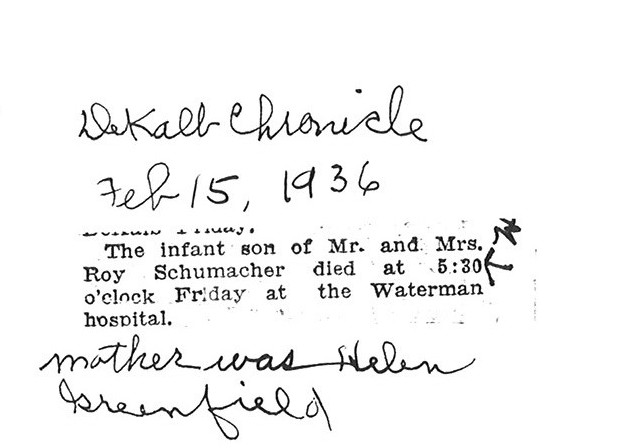 DeKalb Chronicle
Feb 15, 1936
Friday.
The infant son of Mr. and Mrs.
Roy Schumacher died at 5:30
o'clock Friday at the Waterman
hospital.
mother was Helen
Greenfield